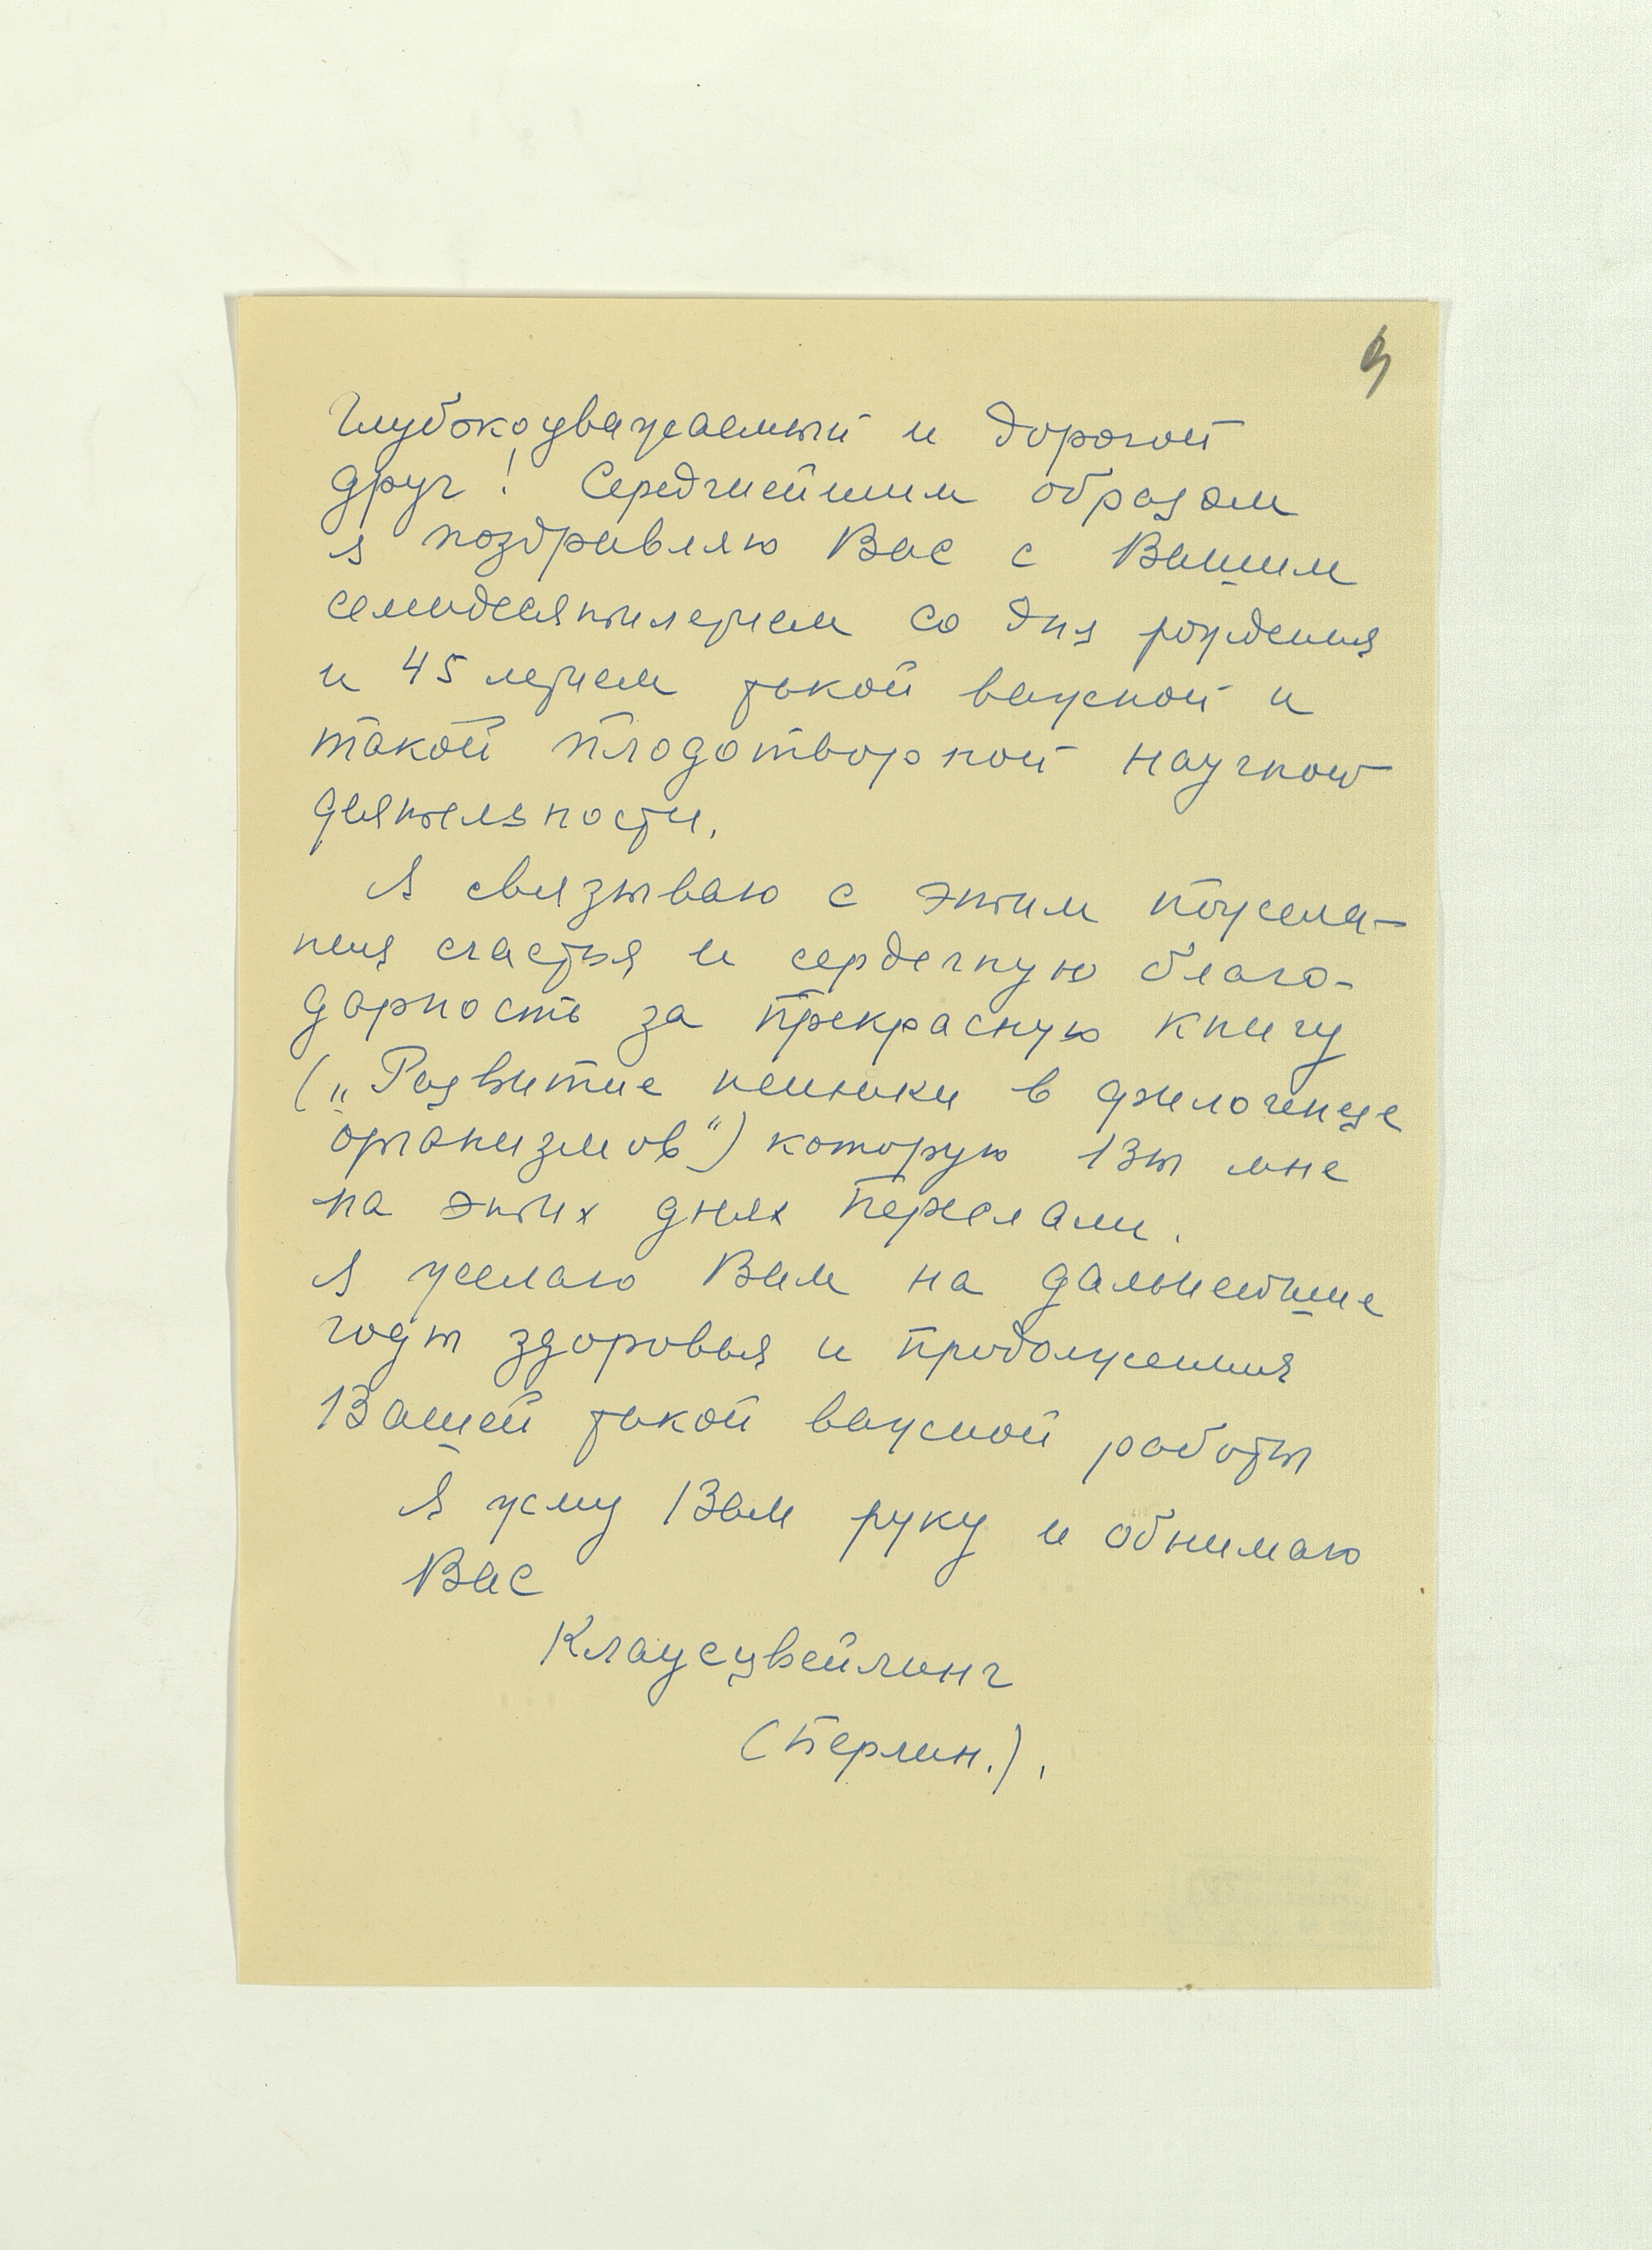 9
Глубокоуважаемый и дорогой
друг! Середчнейшим образом
я поздравляю Вас с Вашим
семидесятилетием со дня рождения
и 45 летием такой важной и
такой плодотворной научной
деятельности.
Я связываю с этим пожела-
ния счастья и сердечную благо-
дарность за прекрасную книгу
(„Развитие психики в филогенезе
организмов“) которую Вы мне
на этих днях переслали.
Я желаю Вам на дальнейшие
годы здоровья и продолжения
Вашей такой важной работы
Я жму Вам руку и обнимаю
Вас
Клаусцвейлинг
(Берлин.).